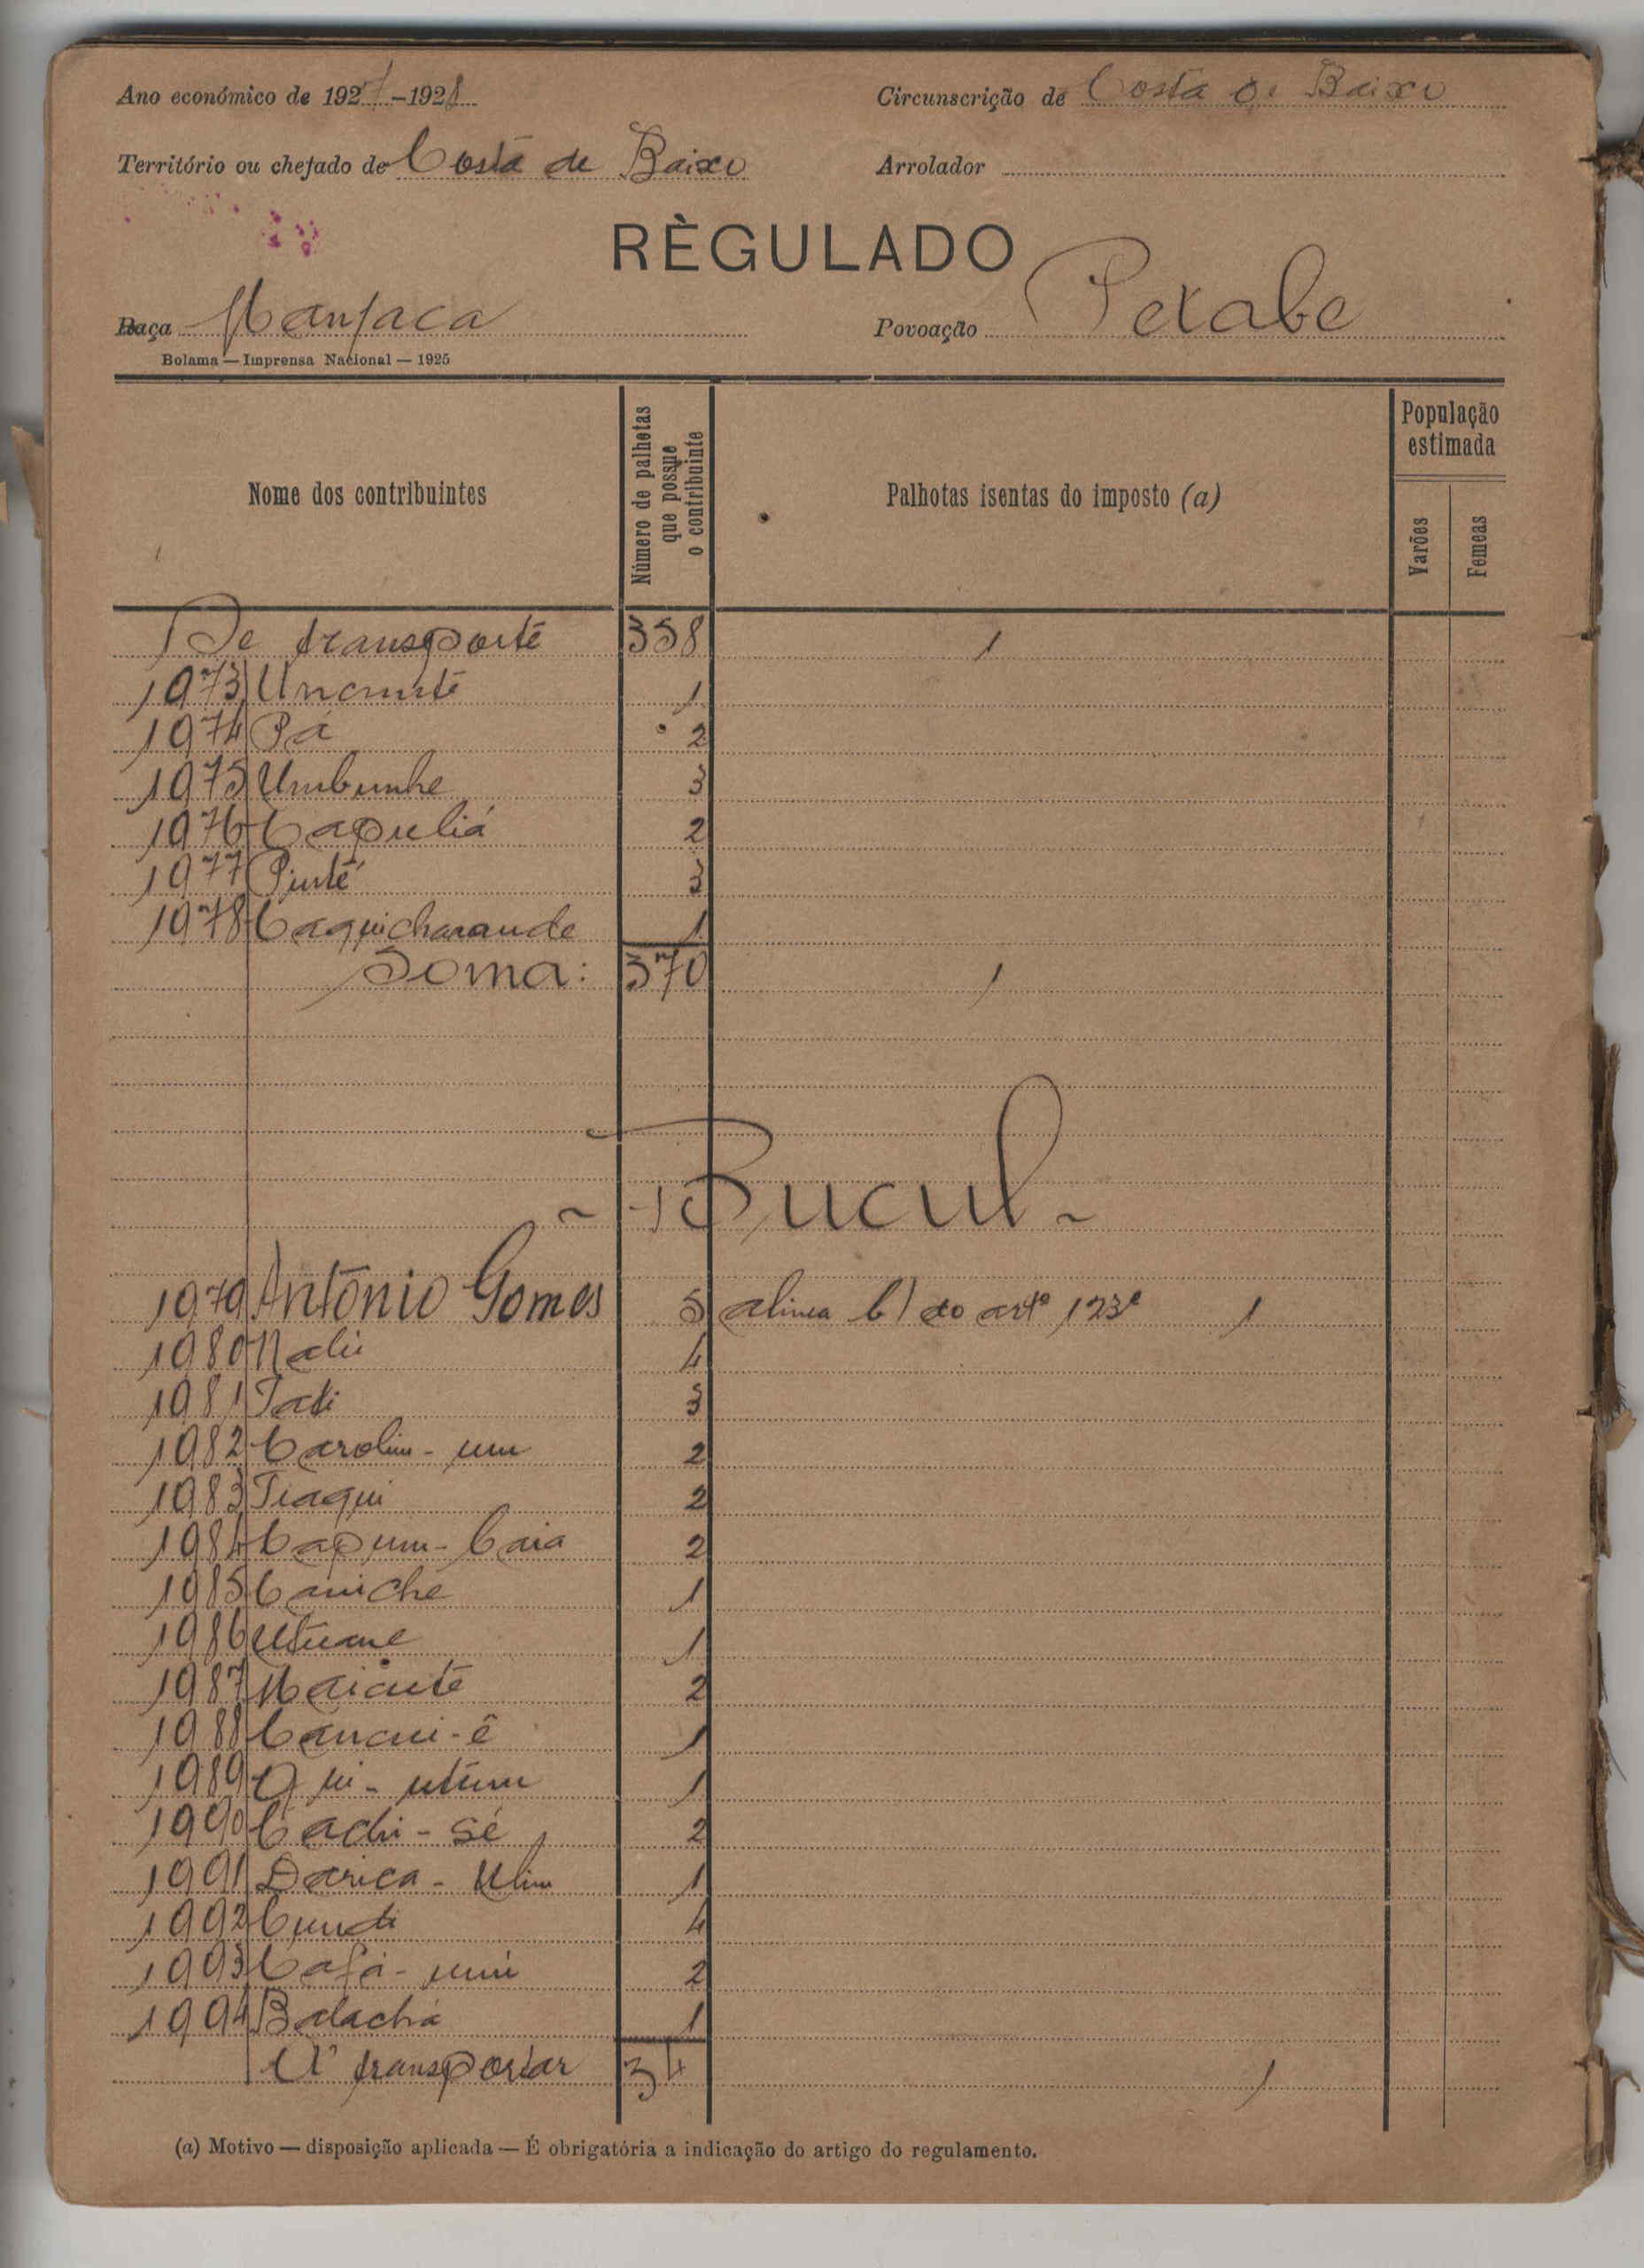 Ano económico de 1927-1928
Circunscrição de Costa de Baixo
Território ou chefado de Costa de Baixo
Arrolador
RÈGULADO
Raça Manjaca
Povoação Pexabe
Bolama — Imprensa Nacional — 1925
Nome dos contribuintes
Número de palhotas que possue o contribuinte
Palhotas isentas do imposto (a)
População estimada
Varões
Femeas
De transporte 358 1
1973 1
1974 Pá 2
1975 Umbunhe 3
1976 Capuliá 2
1977 Pinté 3
1978 Caquicharande 1
Soma: 370 1
~ Bucul ~
1979 António Gomes 5 alinea b) do artº 123º 1
1980 Nadú 4
1981 Tadi 3
1982 Carolim - um 2
1983 Tiaqui 2
1984 Capum - Caia 2
1985 Caniche 1
1986 1
1987 Maiante 2
1988 Cancui - ê 1
1989 Qui - utum 1
1990 Cachi - sé 2
1991 Darica - Ulim 1
1992 Cundi 4
1993 Cafá - 2
1994 Balachá 1
A transportar 34 1
(a) Motivo — disposição aplicada — É obrigatória a indicação do artigo do regulamento.